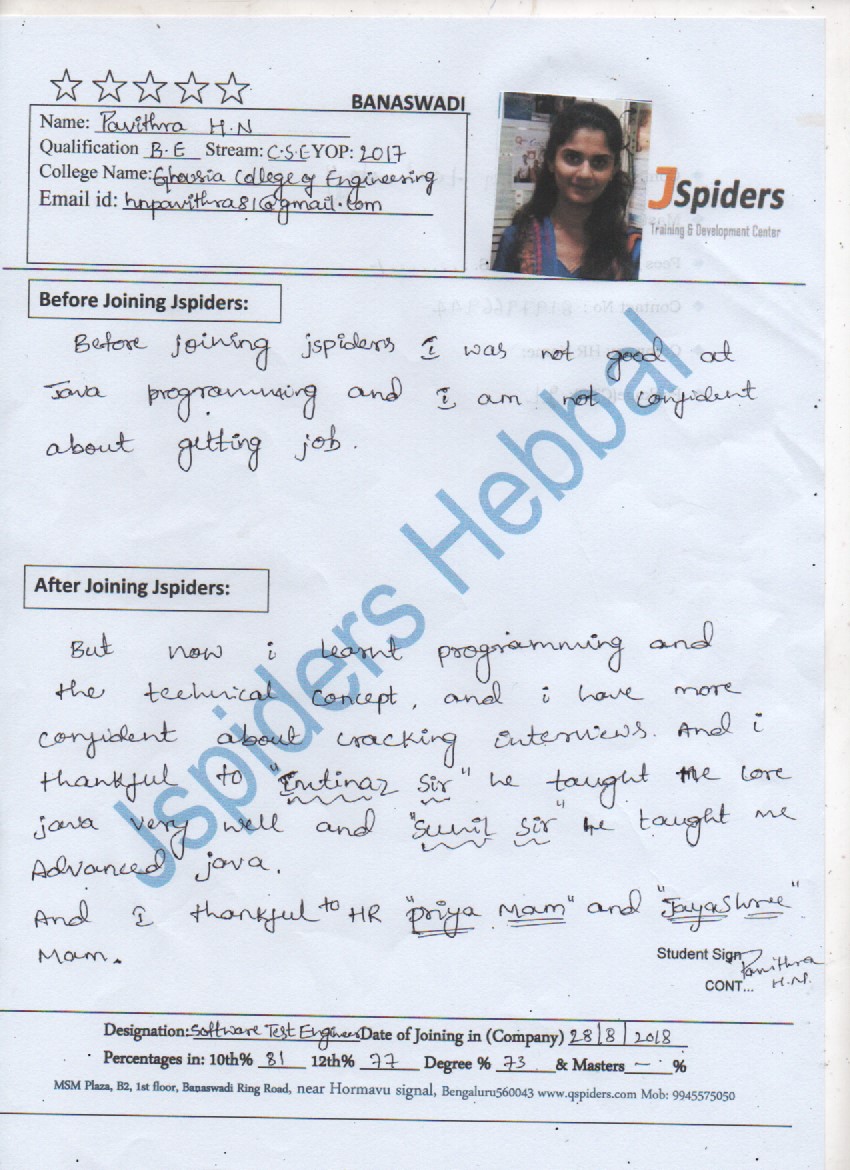 BANASWADI
Name: Pavithra H.N
Qualification B.E Stream: C.S.E YOP: 2017
College Name: Ghousia College of Engineering
Email id: hnpavithra81@gmail.com
JSpiders
Training & Development Center
Before Joining Jspiders:
Before joining jspiders I was not good at
Java programming and I am not confident
about getting job.
After Joining Jspiders:
But now i learnt programming and
the technical concept, and i have more
confident about cracking interviews. And i
thankful to "Imtinaz Sir" he taught me core
java very well and "Sunil Sir" he taught me
Advanced java.
And I thankful to HR "priya Mam" and "JayaShree"
Mam.
Student Sign
Pavithra
CONT... H.N.
Designation: Software Test Engineer Date of Joining in (Company) 28/8/2018
Percentages in: 10th% 81 12th% 77 Degree % 73 & Masters — %
MSM Plaza, B2, 1st floor, Banaswadi Ring Road, near Hormavu signal, Bengaluru560043 www.qspiders.com Mob: 9945575050
Jspiders Hebbal